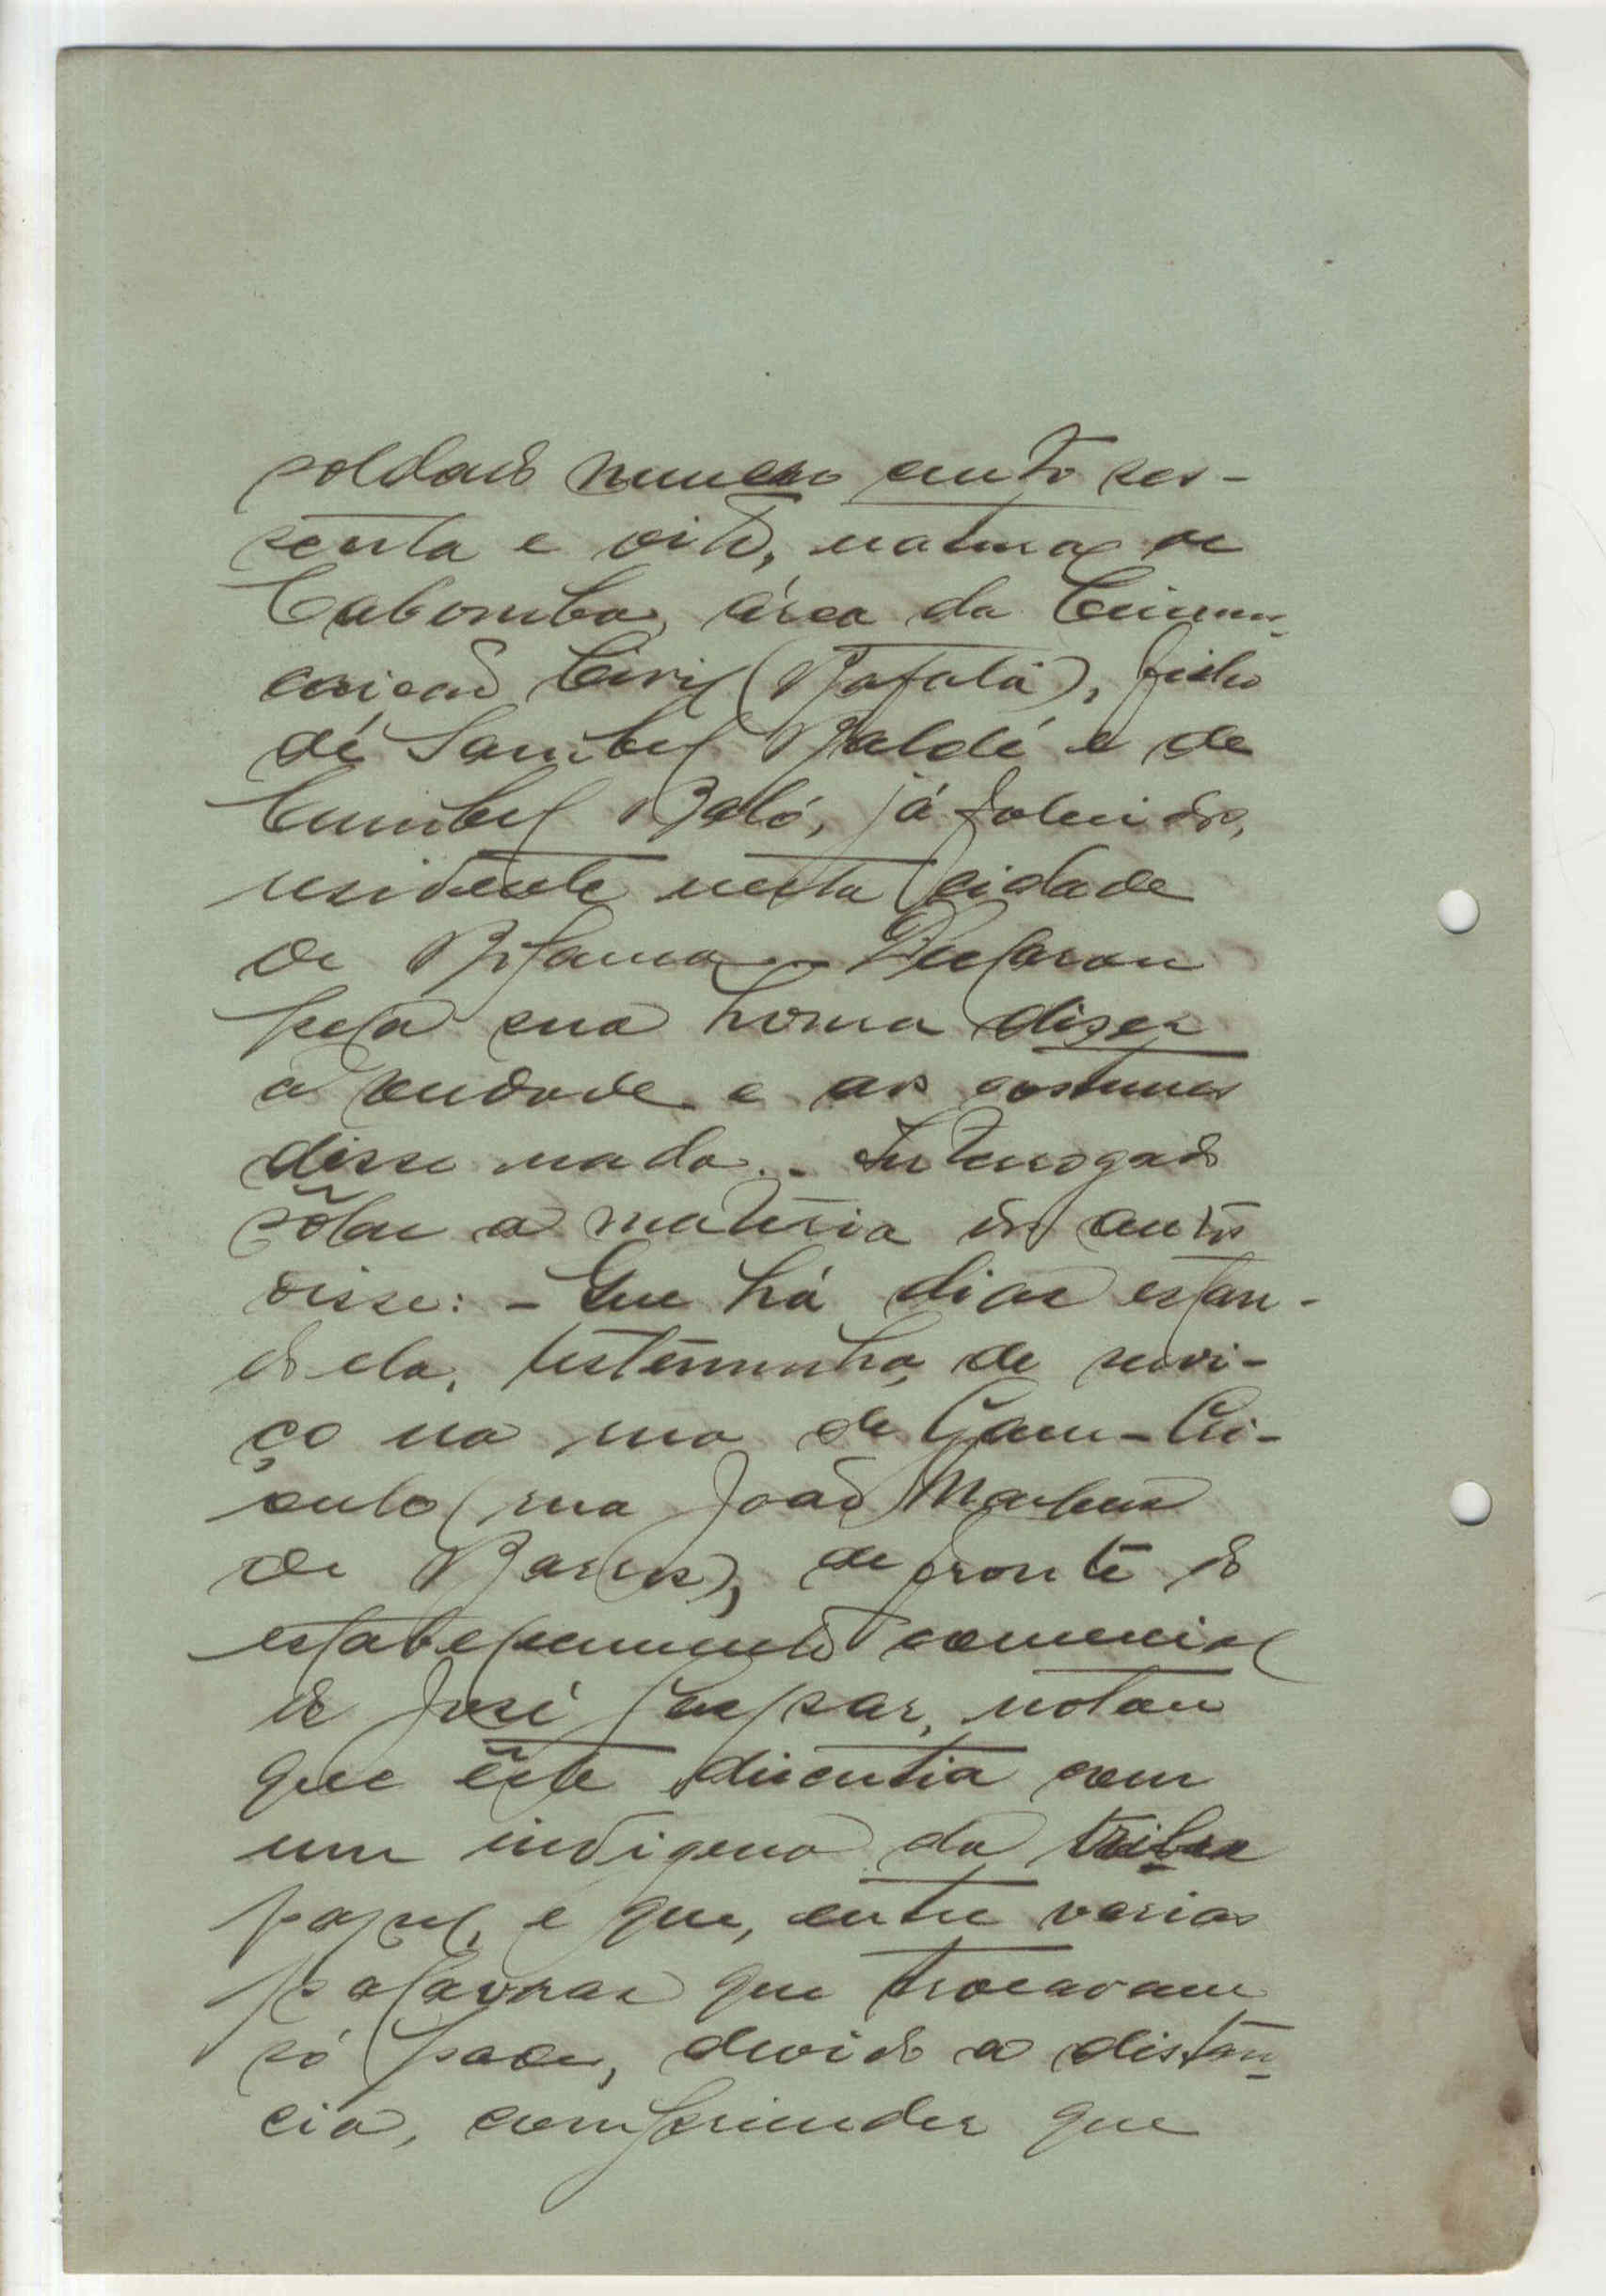 soldado numero cento ses-
senta e oito, natural de
Cabomba, área da Circuns-
crição Civil (Bafatá), filho
de Sambel Baldé e de
Cumbel Baló, já falecidos,
residente nesta cidade
de Bissau. Declarou
pela sua honra dizer
a verdade e aos costumes
disse nada. - Interrogado
sôbre a matéria dos autos
disse: - Que há dias estan-
do ela, testemunha, de servi-
ço na rua de Gam-Cri-
oulo (rua João Marques
de Barros), defronte do
estabelecimento comercial
de José Gaspar, notou
que êste discutia com
um indigena da tribu
papel, e que, entre varias
palavras que trocavam
só poude, devido a distân-
cia, compriender que